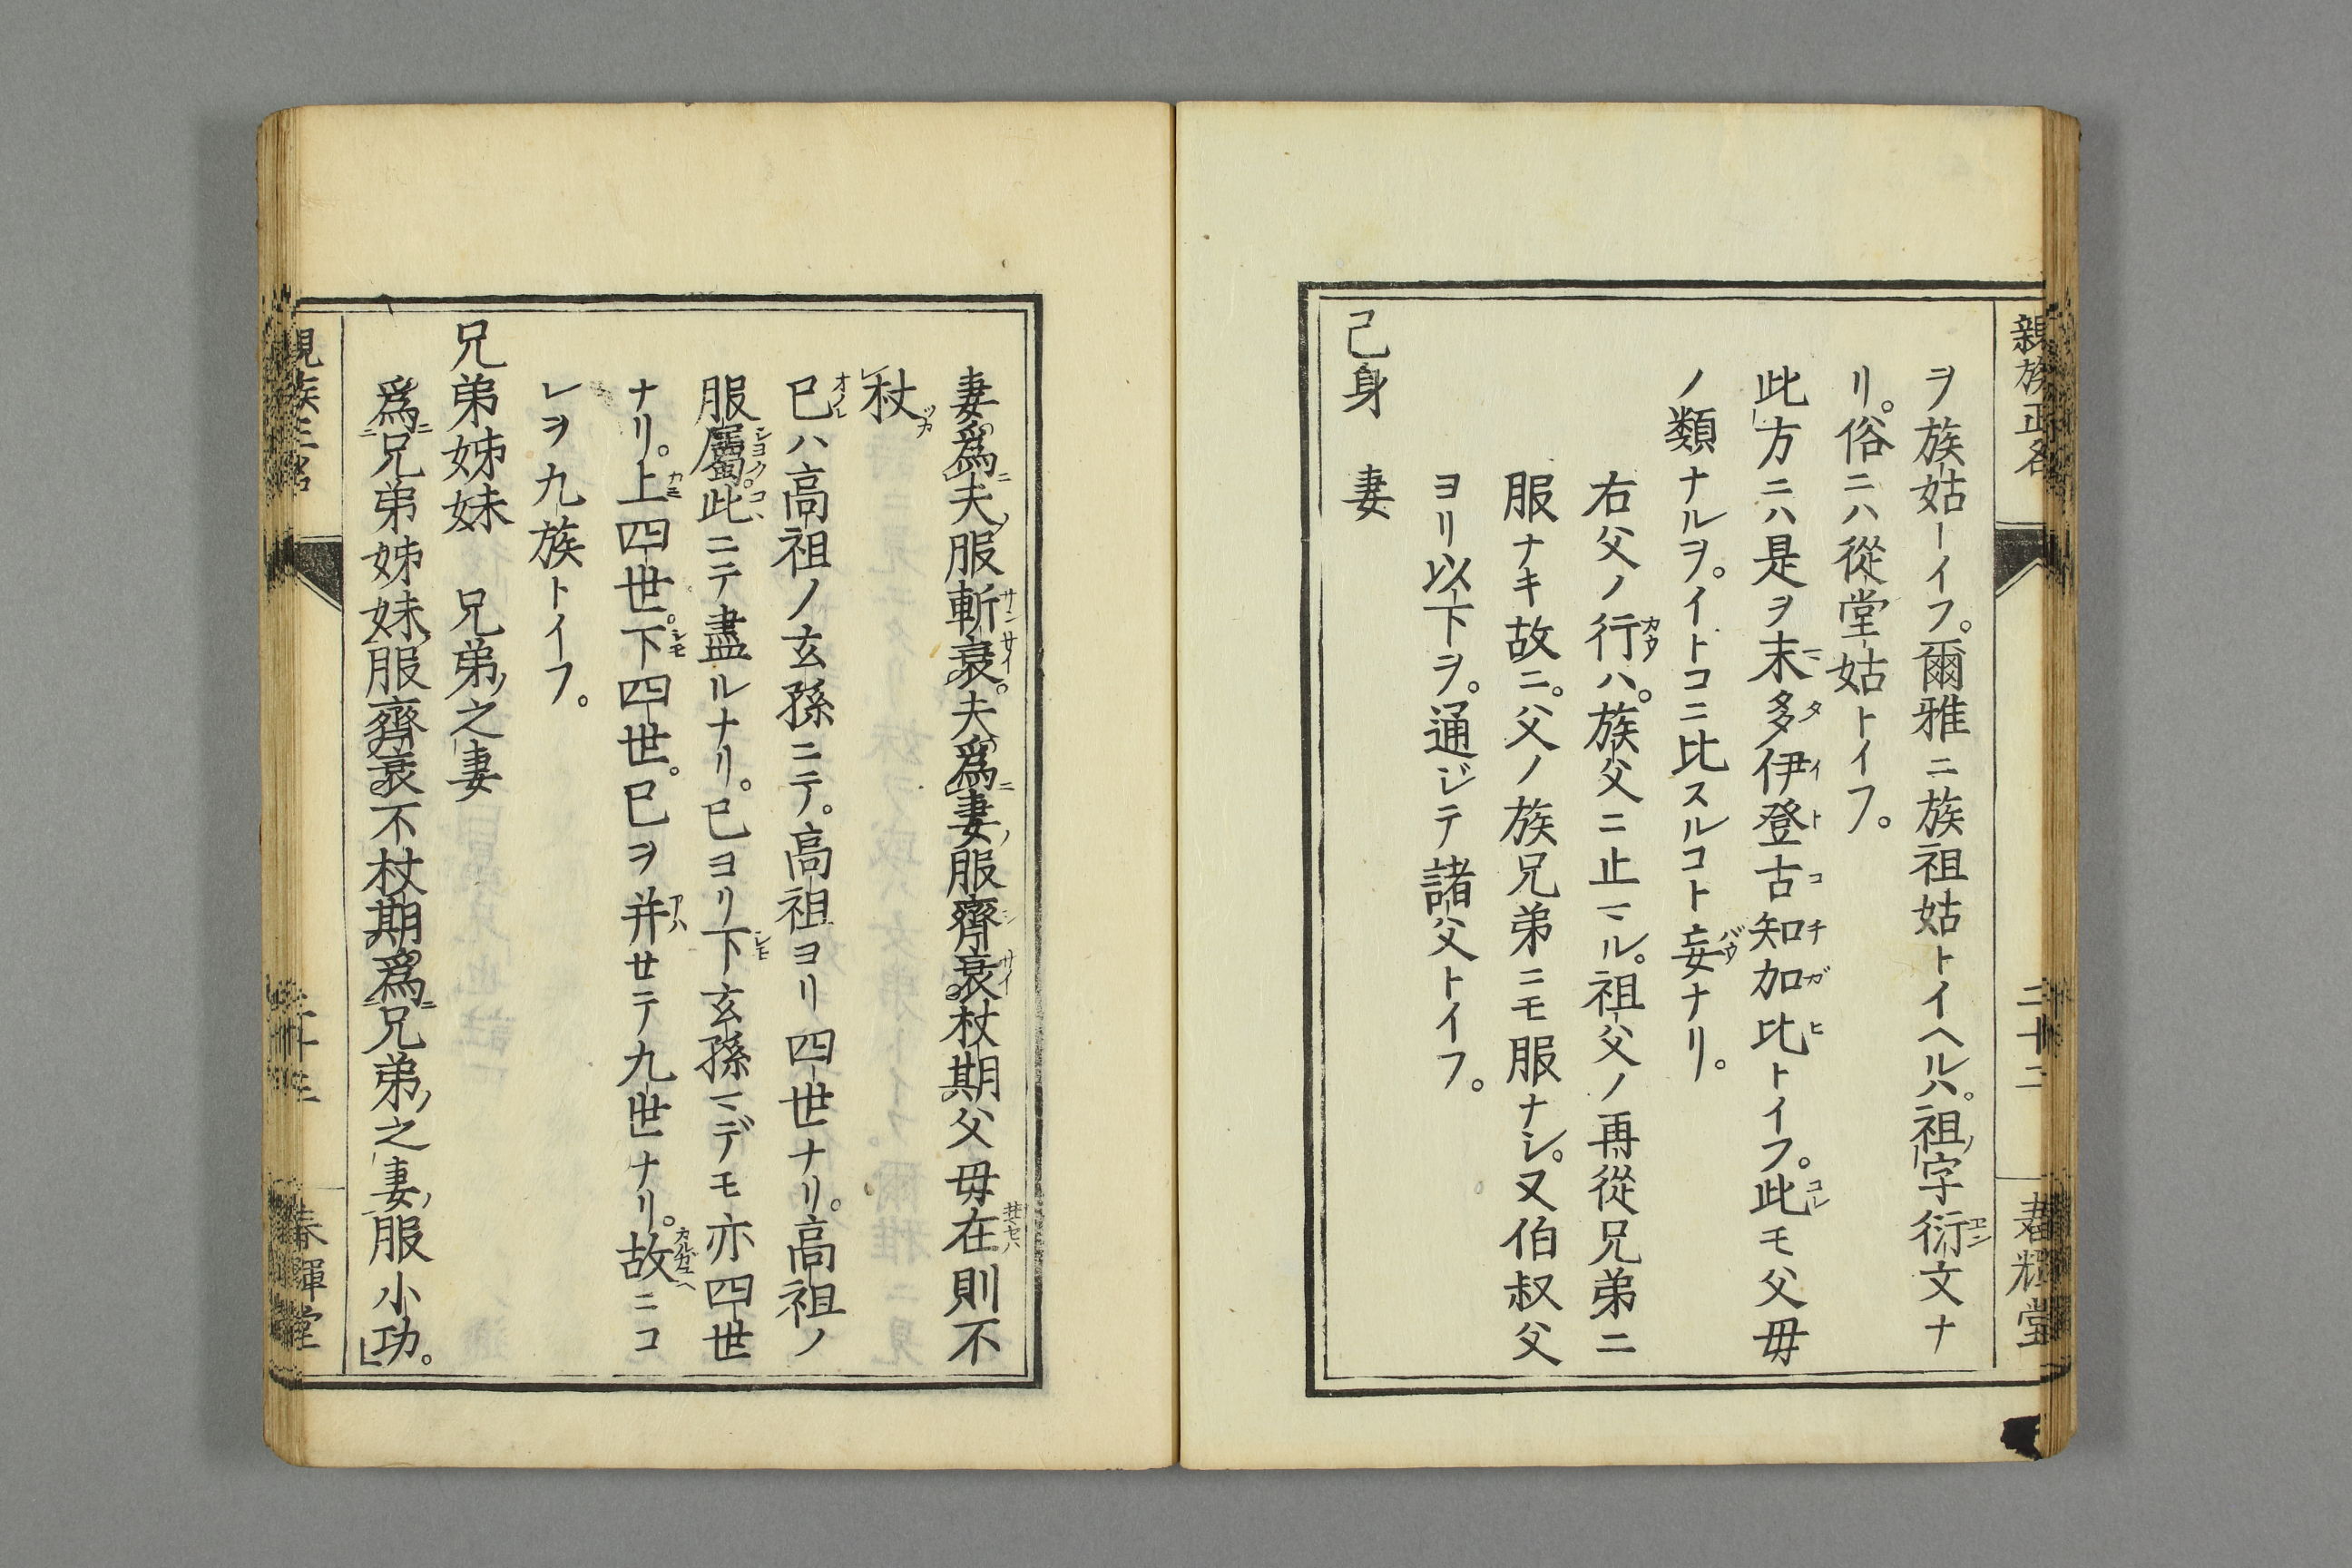 親族正名
二十二
春輝堂
ヲ族姑ーイフ。爾雅ニ族祖姑トイヘルハ。祖ノ字衍文ナ
リ。俗ニハ從堂姑トイフ。
此方ニハ是ヲ末多伊登古知加比トイフ。此モ父毋
ノ類ナルヲ。イトコニ比スルコト妄ナリ。
右父ノ行ハ。族父ニ止マル。祖父ノ再從兄弟ニ
服ナキ故ニ。父ノ族兄弟ニモ服ナシ。又伯叔父
ヨリ以下ヲ。通ジテ諸父トイフ。
己身 妻
妻爲夫服斬衰。夫爲妻服齊衰杖期父毋在則不
杖
已ハ高祖ノ玄孫ニテ。高祖ヨリ四世ナリ。高祖ノ
服屬此ニテ盡ルナリ。已ヨリ下玄孫マデモ亦四世
ナリ。上四世。下四世。已ヲ并セテ九世ナリ。故ニコ
レヲ九族トイフ。
兄弟姊妹 兄弟ノ之妻
爲兄弟姊妹服齊衰不杖期爲兄弟ノ之妻ノ服小功。
親族正名
春輝堂